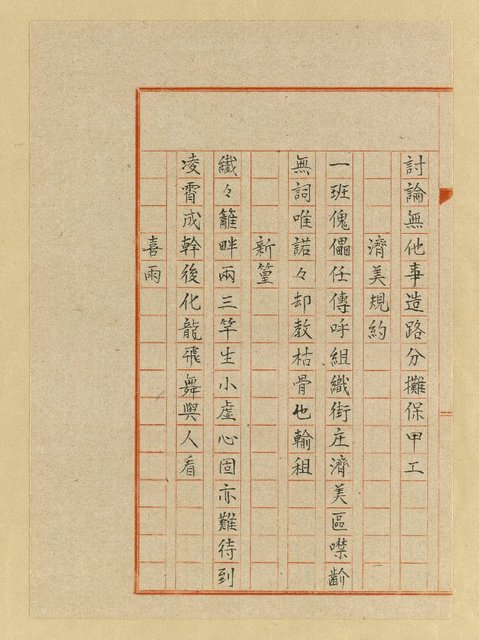 討論無他事造路分攤保甲工
濟美規約
一班傀儡任傳呼組織街庄濟美區噤齘
無詞唯諾々却教枯骨也輸租
新篁
纖々籬畔兩三竿生小虛心固亦難待到
凌霄成幹後化龍飛舞與人看
喜雨